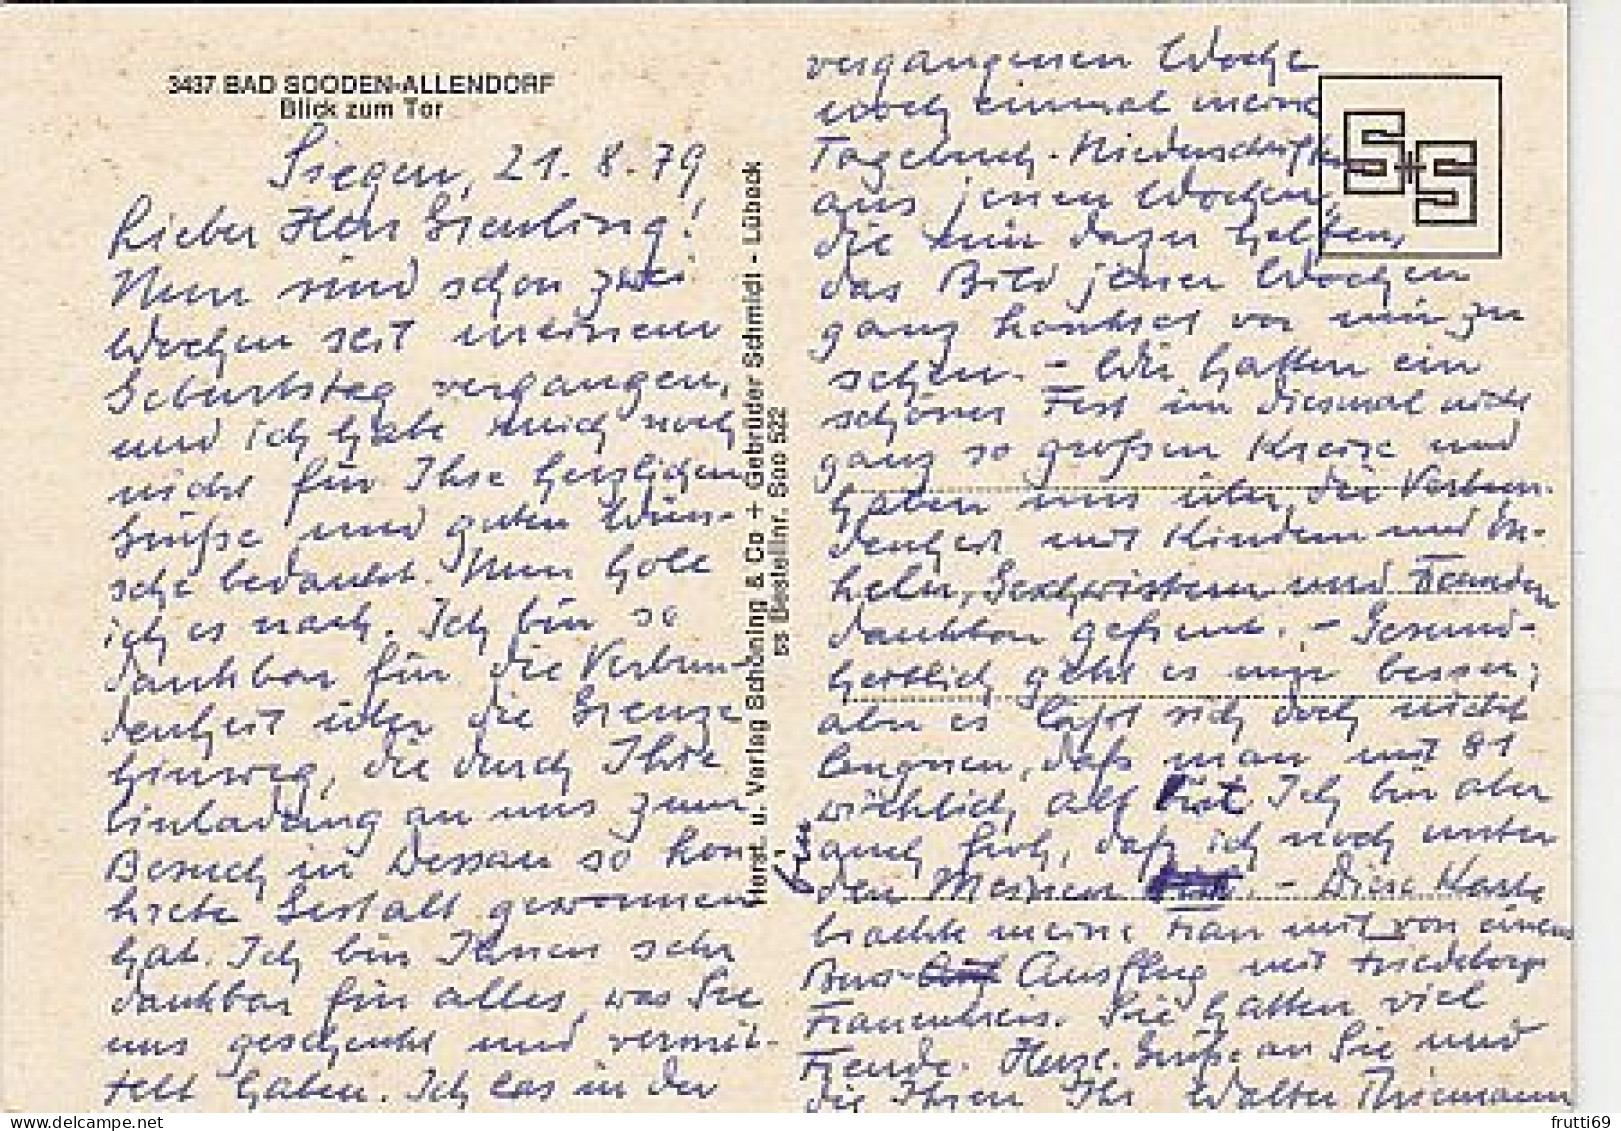 3437 BAD SOODEN-ALLENDORF
Blick zum Tor
Siegen, 21.8.79
Lieber Herr Gierling!
Nun sind schon zwei
Wochen seit meinem
Geburtstag vergangen,
und ich habe mich noch
nicht für Ihre herzlichen
Grüße und guten Wün-
sche bedankt. Nun hole
ich es nach. Ich bin so
dankbar für die Verbun-
denheit über die Grenze
hinweg, die durch Ihre
Einladung an uns zum
Besuch in Dessau so kon-
krete Gestalt gewonnen
hat. Ich bin Ihnen sehr
dankbar für alles, was Sie
uns geschenkt und vermit-
telt haben. Ich las in der
Herst. u. Verlag Schöning & Co + Gebrüder Schmidt - Lübeck
Bestellnr. Soo 522
vergangenen Woche
noch einmal meine
Tagebuch-Niederschriften
aus jenen Wochen,
die mir dazu helfen,
das Bild jener Wochen
ganz konkret vor mir zu
sehen. - Wir hatten ein
schönes Fest im diesmal nicht
ganz so großen Kreise und
haben uns über die Verbun-
denheit mit Kindern und En-
keln, Geschwistern und Freunden
dankbar gefreut. - Gesund-
heitlich geht es mir besser;
aber es läßt sich doch nicht
leugnen, daß man mit 81
wirklich alt ist. Ich bin aber
auch froh, daß ich noch unter
den Meinen bin. - Diese Karte
brachte meine Frau mit von einem
Bus-Ausflug mit Friedeborgs
Frauenkreis. Sie hatten viel
Freude. Herzl. Grüße an Sie und
die Ihren Ihr Walter Thiemann
S+S
frutti69